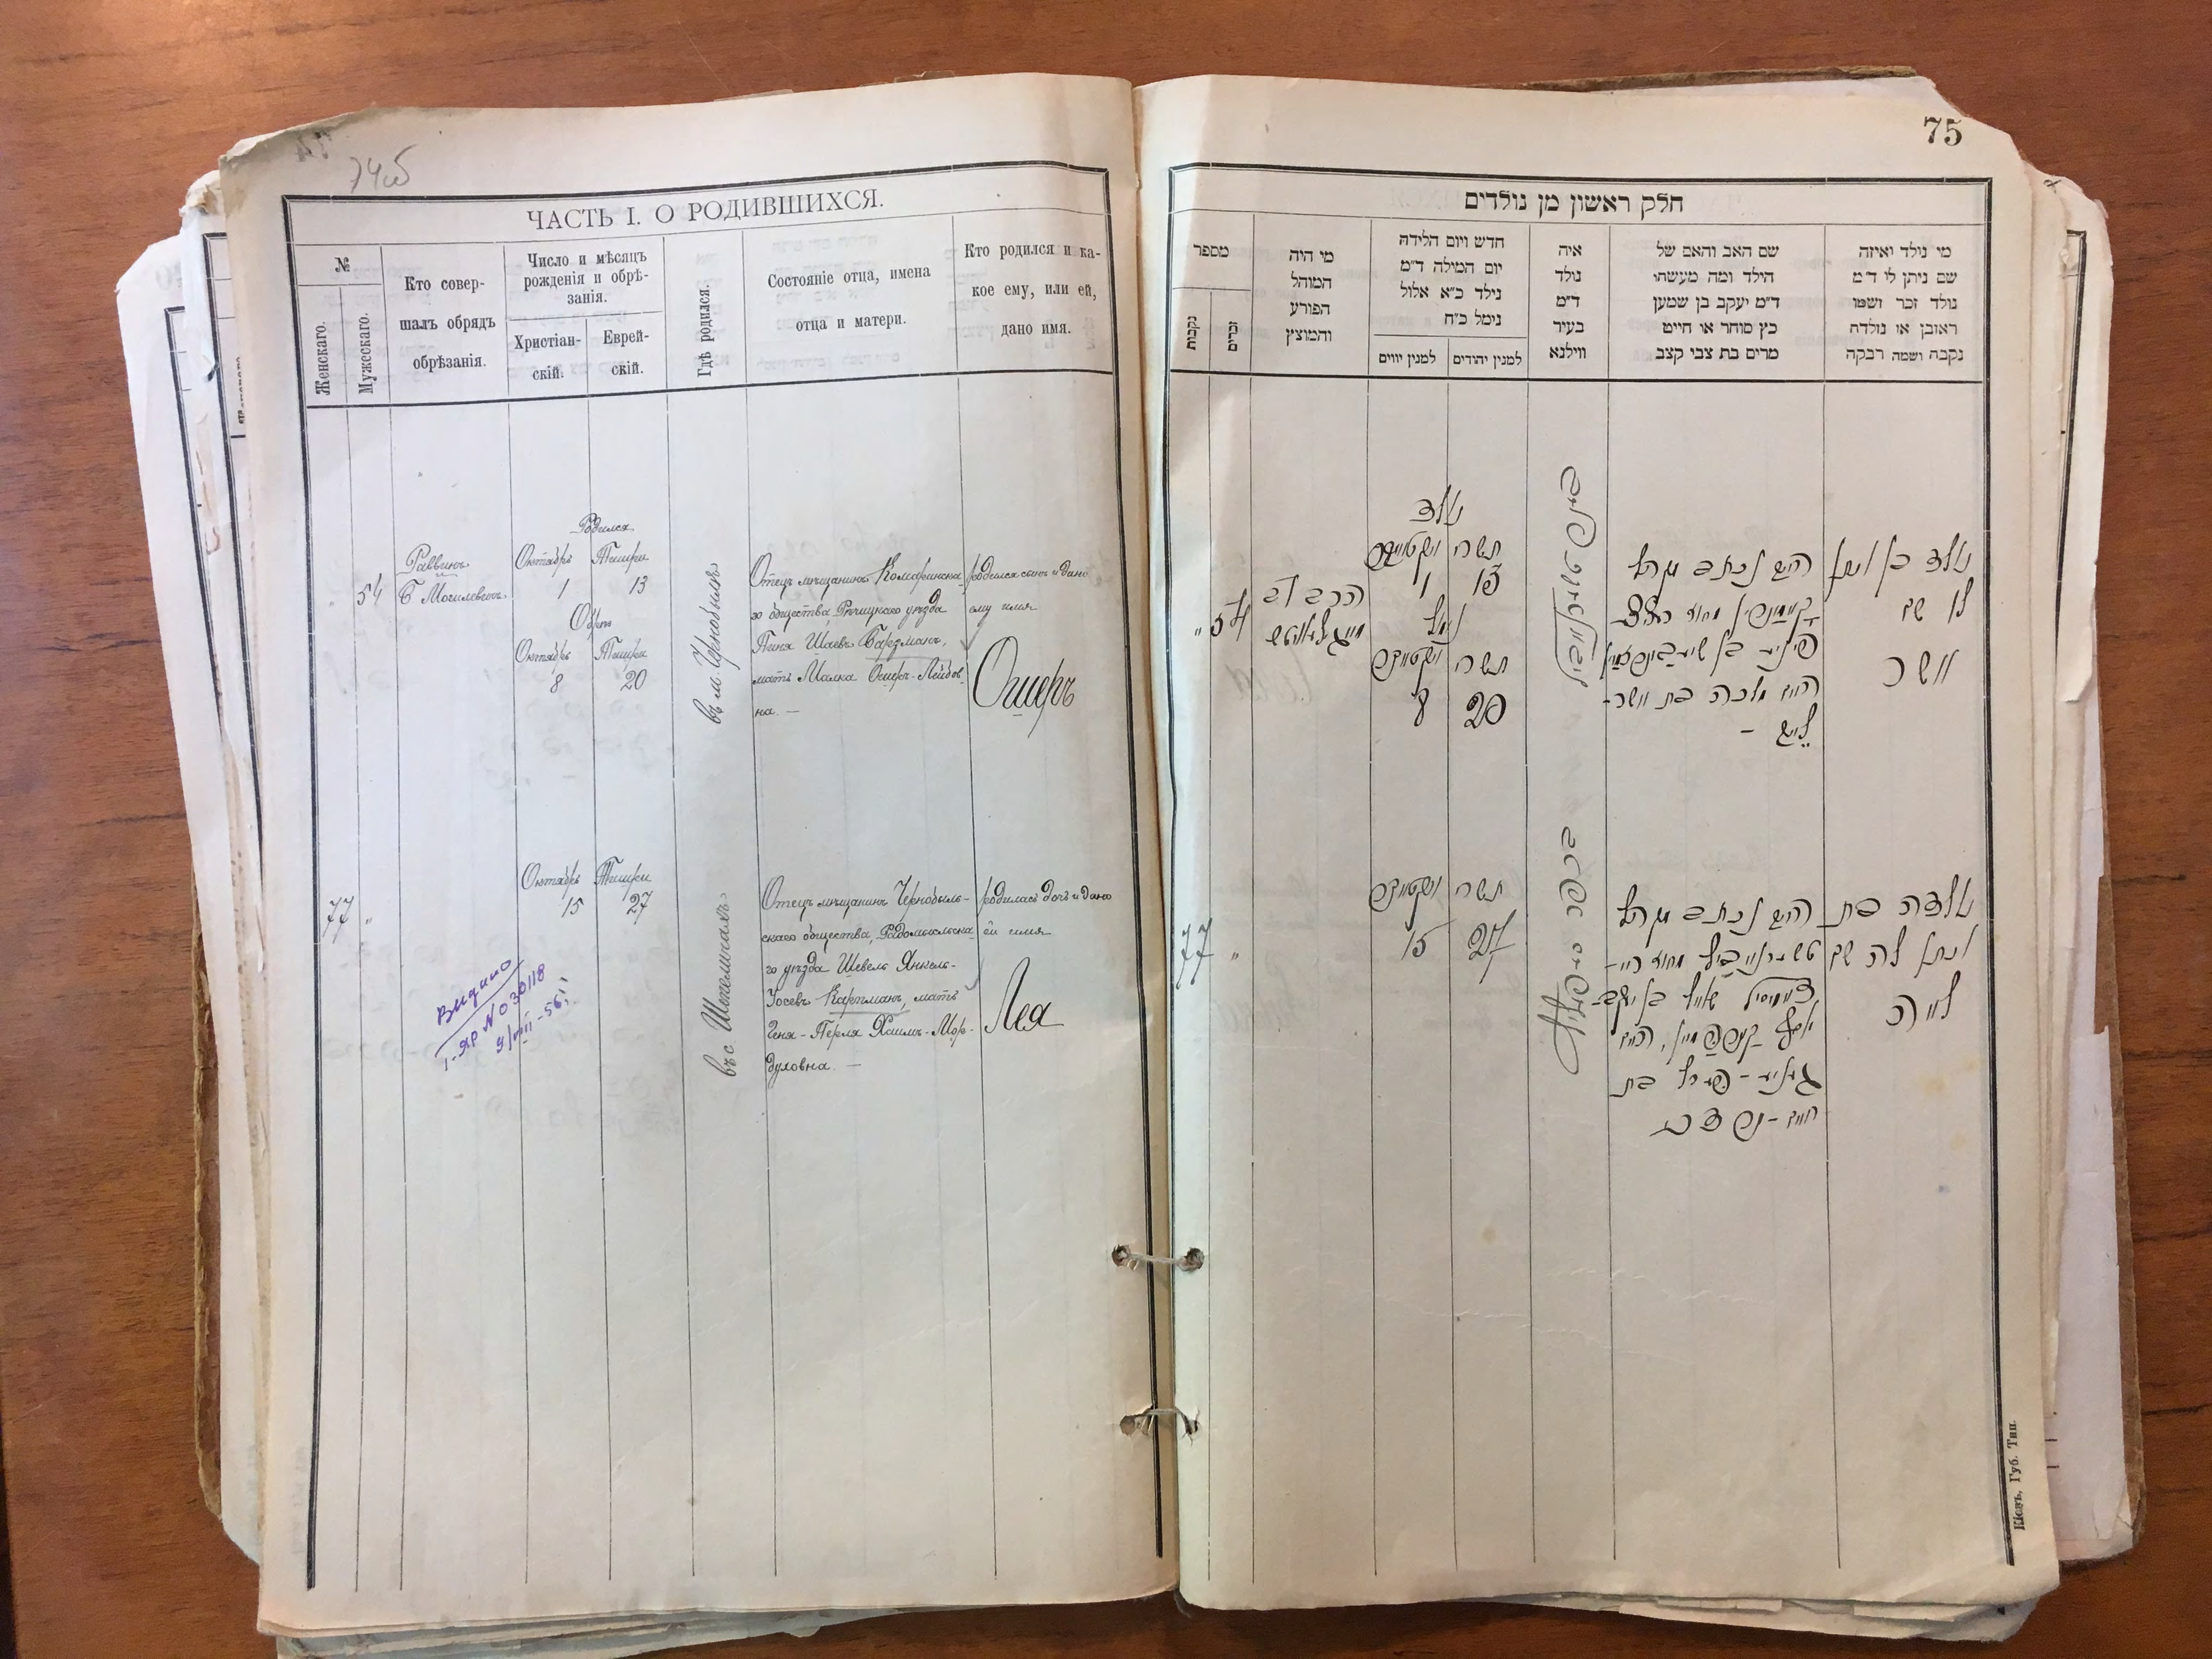 74об
ЧАСТЬ I. О РОДИВШИХСЯ.
№
Женскаго.
Мужескаго.
Кто совер-
шалъ обрядъ
обрѣзанія.
Число и мѣсяцъ
рожденія и обрѣ-
занія.
Христіан-
скій.
Еврей-
скій.
Гдѣ родился.
Состояніе отца, имена
отца и матери.
Кто родился и ка-
кое ему, или ей,
дано имя.
54
Раввинъ
Б. Могилевскій
Родился
Октябрь Тишри
1 13
Обрѣз
Октябрь Тишри
8 20
въ м. Чернобылѣ
Отецъ мѣщанинъ Комаринска-
го общества, Рѣчицкаго уѣзда
Пиня Шаевъ Барзманъ,
мать Малка Ошеръ-Лейбов-
на. —
родился сынъ и дано
ему имя
Ошеръ
77 "
Октябрь Тишри
15 27
въ с. Шепеличахъ
Отецъ мѣщанинъ Чернобыль-
скаго общества, Радомысльска-
го уѣзда Шевель Янкель-
Іосевъ Карпманъ, мать
Геня-Перля Хаимъ-Мор-
духовна. —
родилась дочь и дано
ей имя
Лея
Видано
І-ЯР № 030118
9/VIII-56
75
חלק ראשון מן נולדים
מי נולד ואיזה
שם ניתן לי ד״מ
נולד זכר ושמו
ראובן או נולדה
נקבה ושמה רבקה
שם האב והאם של
הילד ומה מעשהו
ד״מ יעקב בן שמען
כץ סוחר או חייט
מרים בת צבי קצב
איה
נולד
ד״מ
בעיר
ווילנא
חדש ויום הלידה
יום המילה ד״מ
נילד כ״א אלול
נימל כ״ח
למנין יהודים
למנין יווים
מי היה
המוהל
הפורע
והמוצץ
מספר
זכרים
נקבות
נולד בן ונתן
לו שם
אשר
האב נכתב בקהל
האם מלכה בת אשר-
לייב -
נולד
תשרי אקטאבער
13 1
נמול
תשרי אקטאבער
20 8
הרב ב׳
54 "
נולדה בת
ונתן לה שם
לאה
האב נכתב בקהל
יוסף קארפמאן, האם
געניע-פערל בת
חיים-מרדכי
תשרי אקטאבער
27 15
77 "
Кіевъ, Губ. Тип.